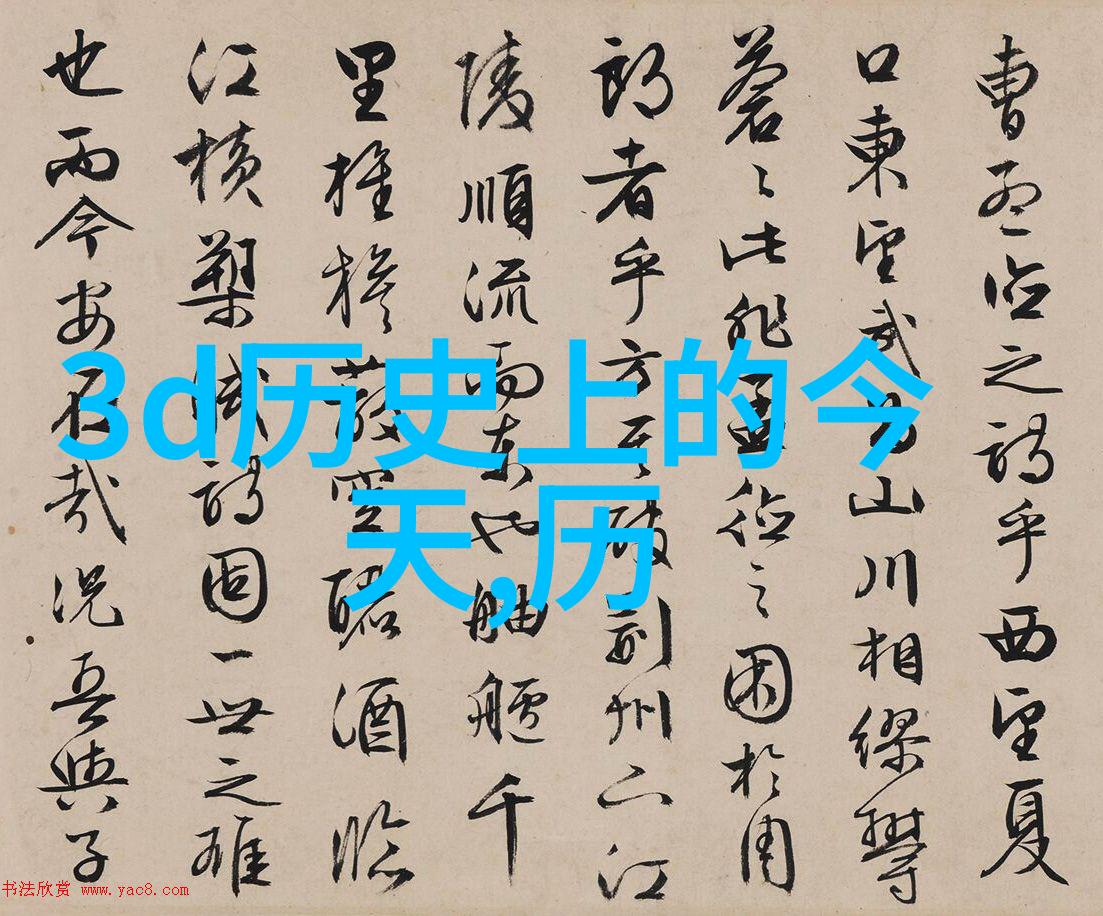 曹孟德之詩乎西望夏
口東望武昌山川相繆鬱
蒼々此非孟德之困於周
郎者乎方其破荊州下江
陵順流而東也舳艫千
里旌旗蔽空釃酒臨
江橫槊賦詩固一世之雄
也而今安在哉況吾與子
3d历史上的今
天,历
书法欣赏 www.yac8.com